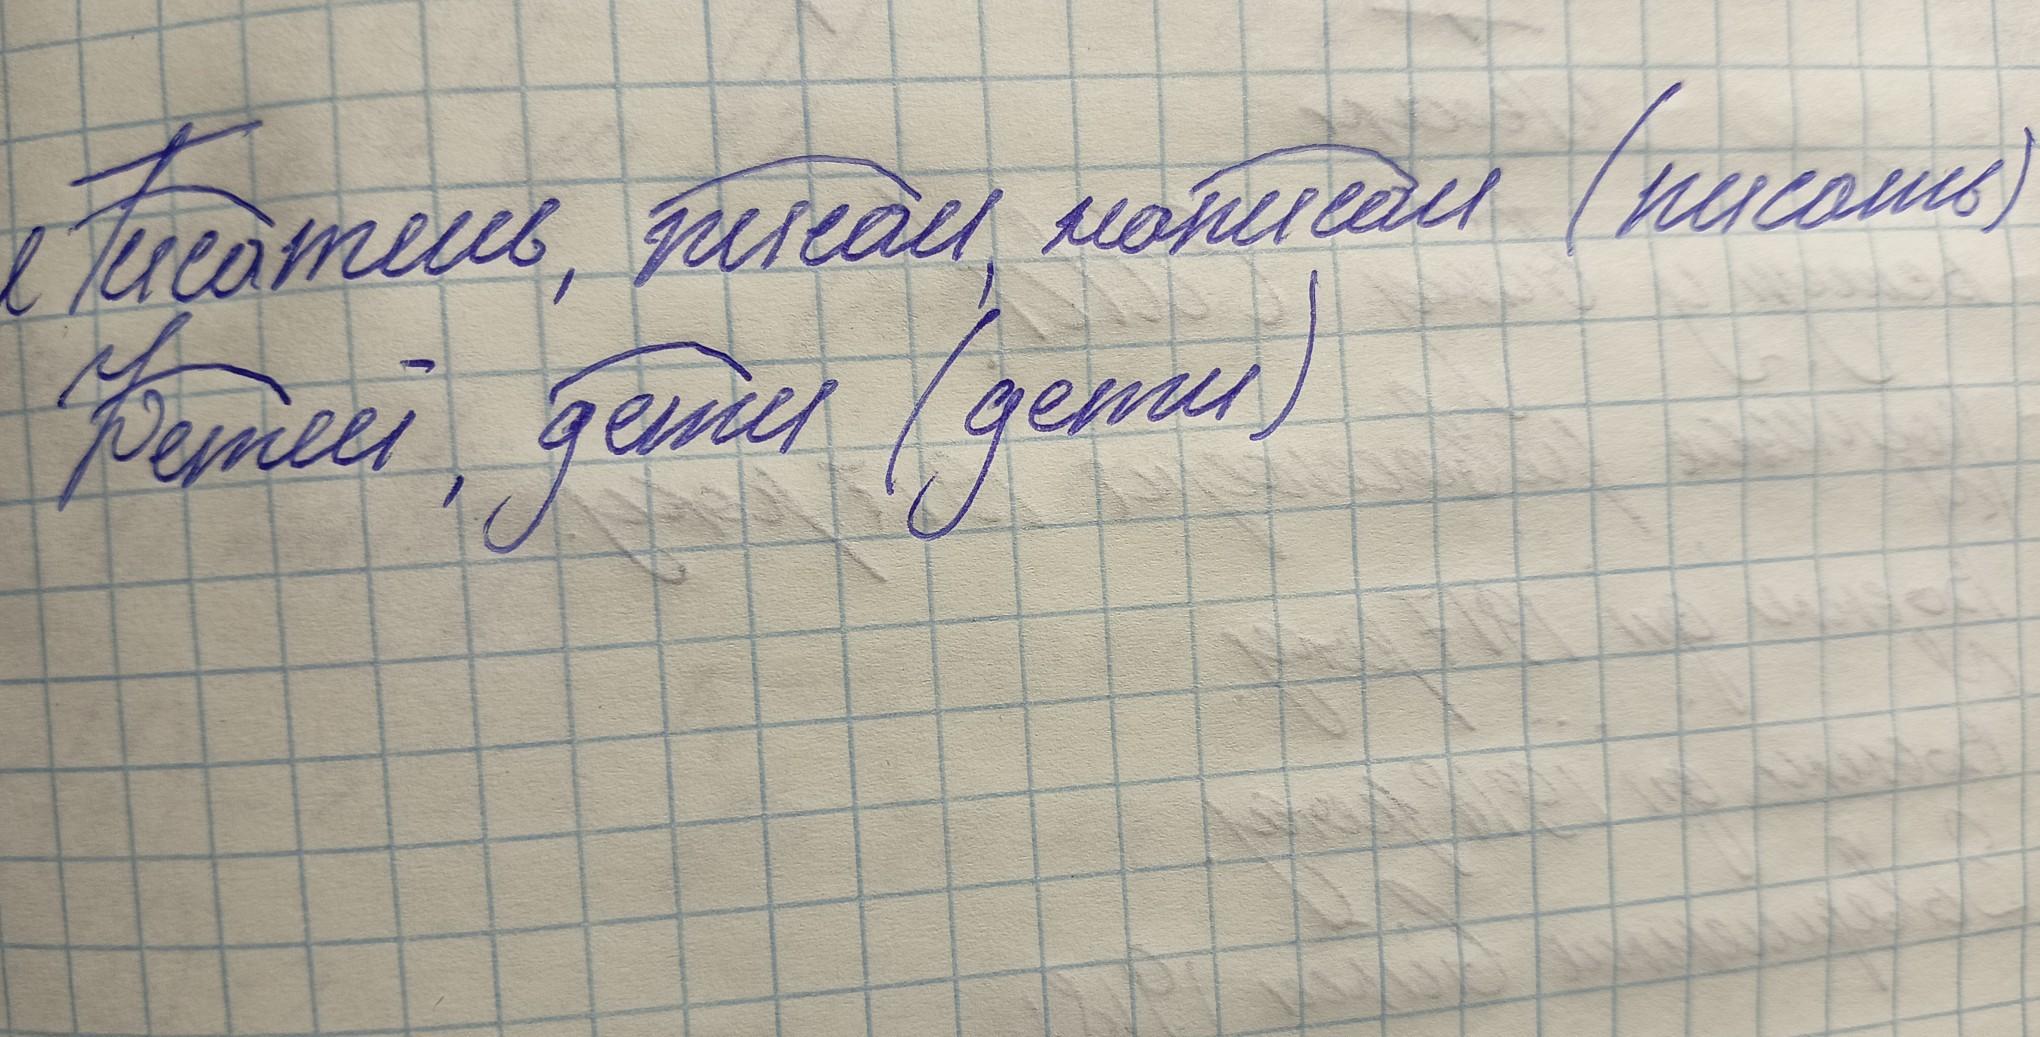 Писатель, писал, написал (писать)
Детей, дети (дети)